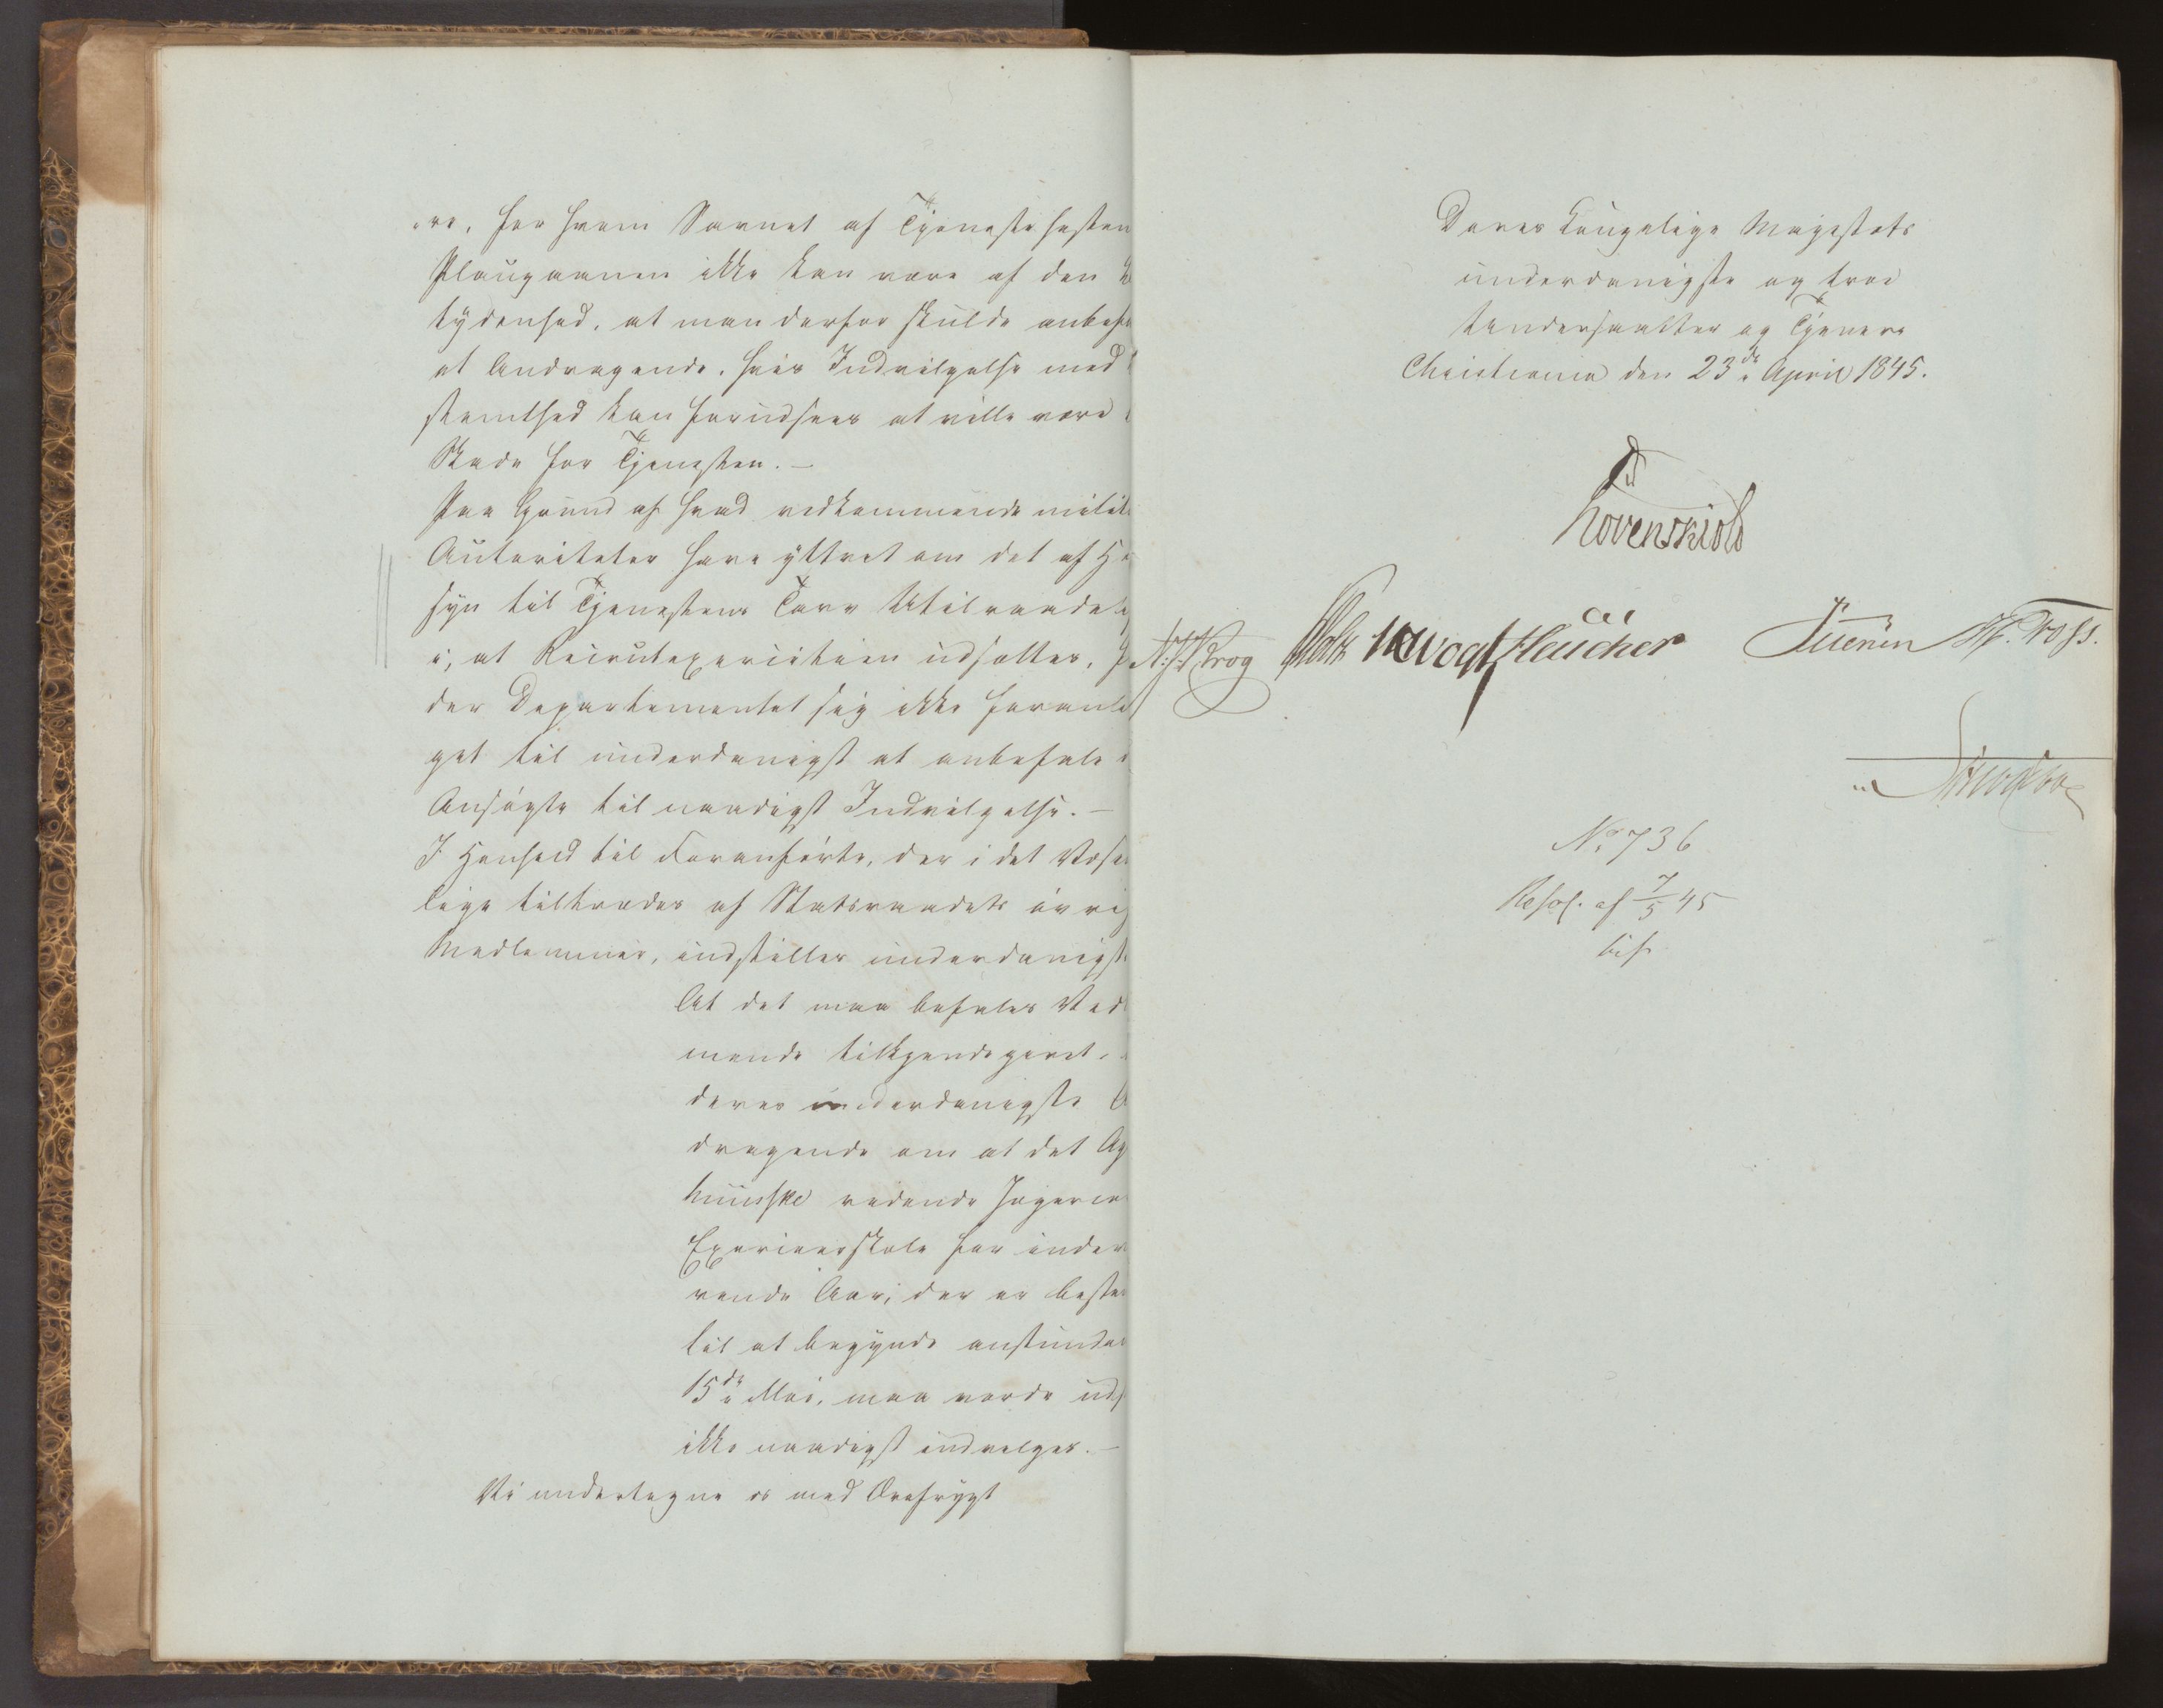 ere, for hvem Savnet af Tjenestehesten
Plougaanen ikke kan være af den
tydenhed, at man derfor skulde anbefa
et Andragende, hvis Indvilgelse med
stemthed kan forudsees at ville være
Skade for Tjenesten. —
Paa Grund af hvad vedkommende milit
Autoriteter have yttret om det af He
syn til Tjenestens Tarv Utilraadel
i, at Recrutexercitien udsættes, f
der Departementet sig ikke foranle
get til underdanigst at anbefale
Ansøgte til naadigst Indvilgelse. —
I Henhold til Foranførte, der i det Væse
lige tiltrædes af Statsraadets øvrig
Medlemmer, indstilles underdanigst
At det maa befales Ved
mende tilkjendegivet,
deres underdanigste A
dragende om at det Ag
huusske ridende Jægerco
Exerceerskole for inde
rende Aar, der er beste
til at begynde anstunde
15de Mai, maa vorde uds
ikke naadigst indvilges. —
Vi undertegne os med Ærefrygt
Deres Kongelige Majestæts
underdanigste og troe
Undersaatter og Tjenere
Christiania den 23de April 1845.
Løvenskiold
N. J. Krog Holst JHVogt Fleischer Sibbern
No. 736
Resol. af 7/5 45
bif